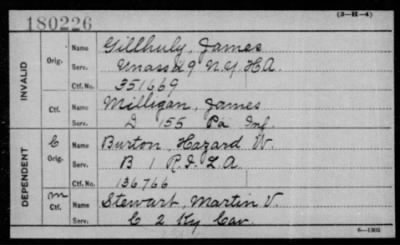 180226
(3-H-4)
INVALID
Orig.
Name Gillhuly, James
Serv. Unass & 9 N.Y.H.A.
Ctf. No. 351669
Ctf.
Name Milligan, James
Serv. D 155 Pa Inf
DEPENDENT
C
Orig.
Name Burton, Hazard W.
Serv. B 1 R.I.L.A.
Ctf. No. 136766
m
Ctf.
Name Stewart, Martin V.
Serv. C 2 Ky Cav.